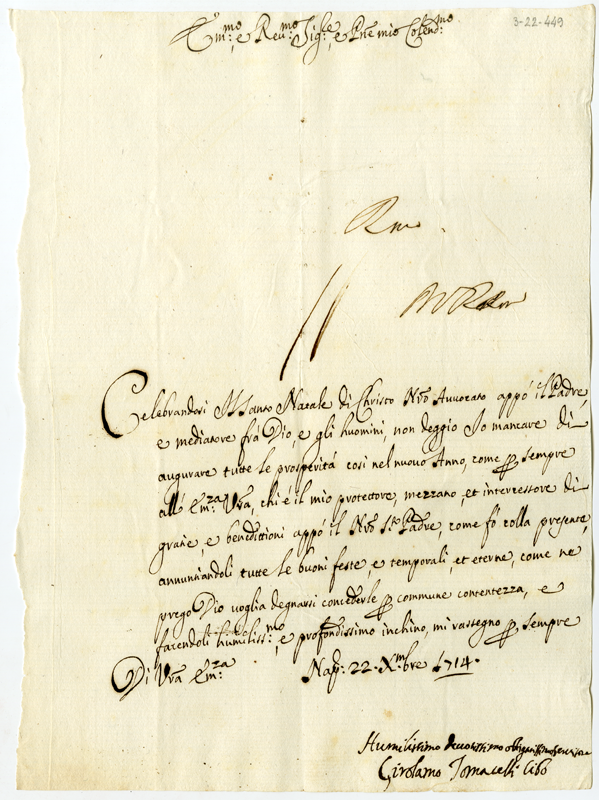 3-22-449
Em:mo e Rev:mo Sig:re, e Pne mio Colend:mo
Celebrandosi il Santo Natale di Christo Nro Avvocato appó il Padre,
e mediatore frá Dio, e gli huomini, non deggio Io mancare di
augurare tutte le prosperitá cosi nel nuovo Anno, come p sempre
all' Em:za Vra, chi é il mio protettore, mezzano, et intercessore di
grazie, e benedittioni appó il Nro S.to Padre, come fó colla presente,
annunziandoli tutte le buoni feste, e temporali, et eterne, come ne
prego Dio voglia degnarsi concederle p commune contentezza, e
facendoli humiliss:mo, e profondissimo inchino, mi rassegno p sempre
Di Vra Em:za Nap: 22 Xmbre 1714.
Humilissimo devotissimo obligatissimo
Girolamo Tomacelli Cibo